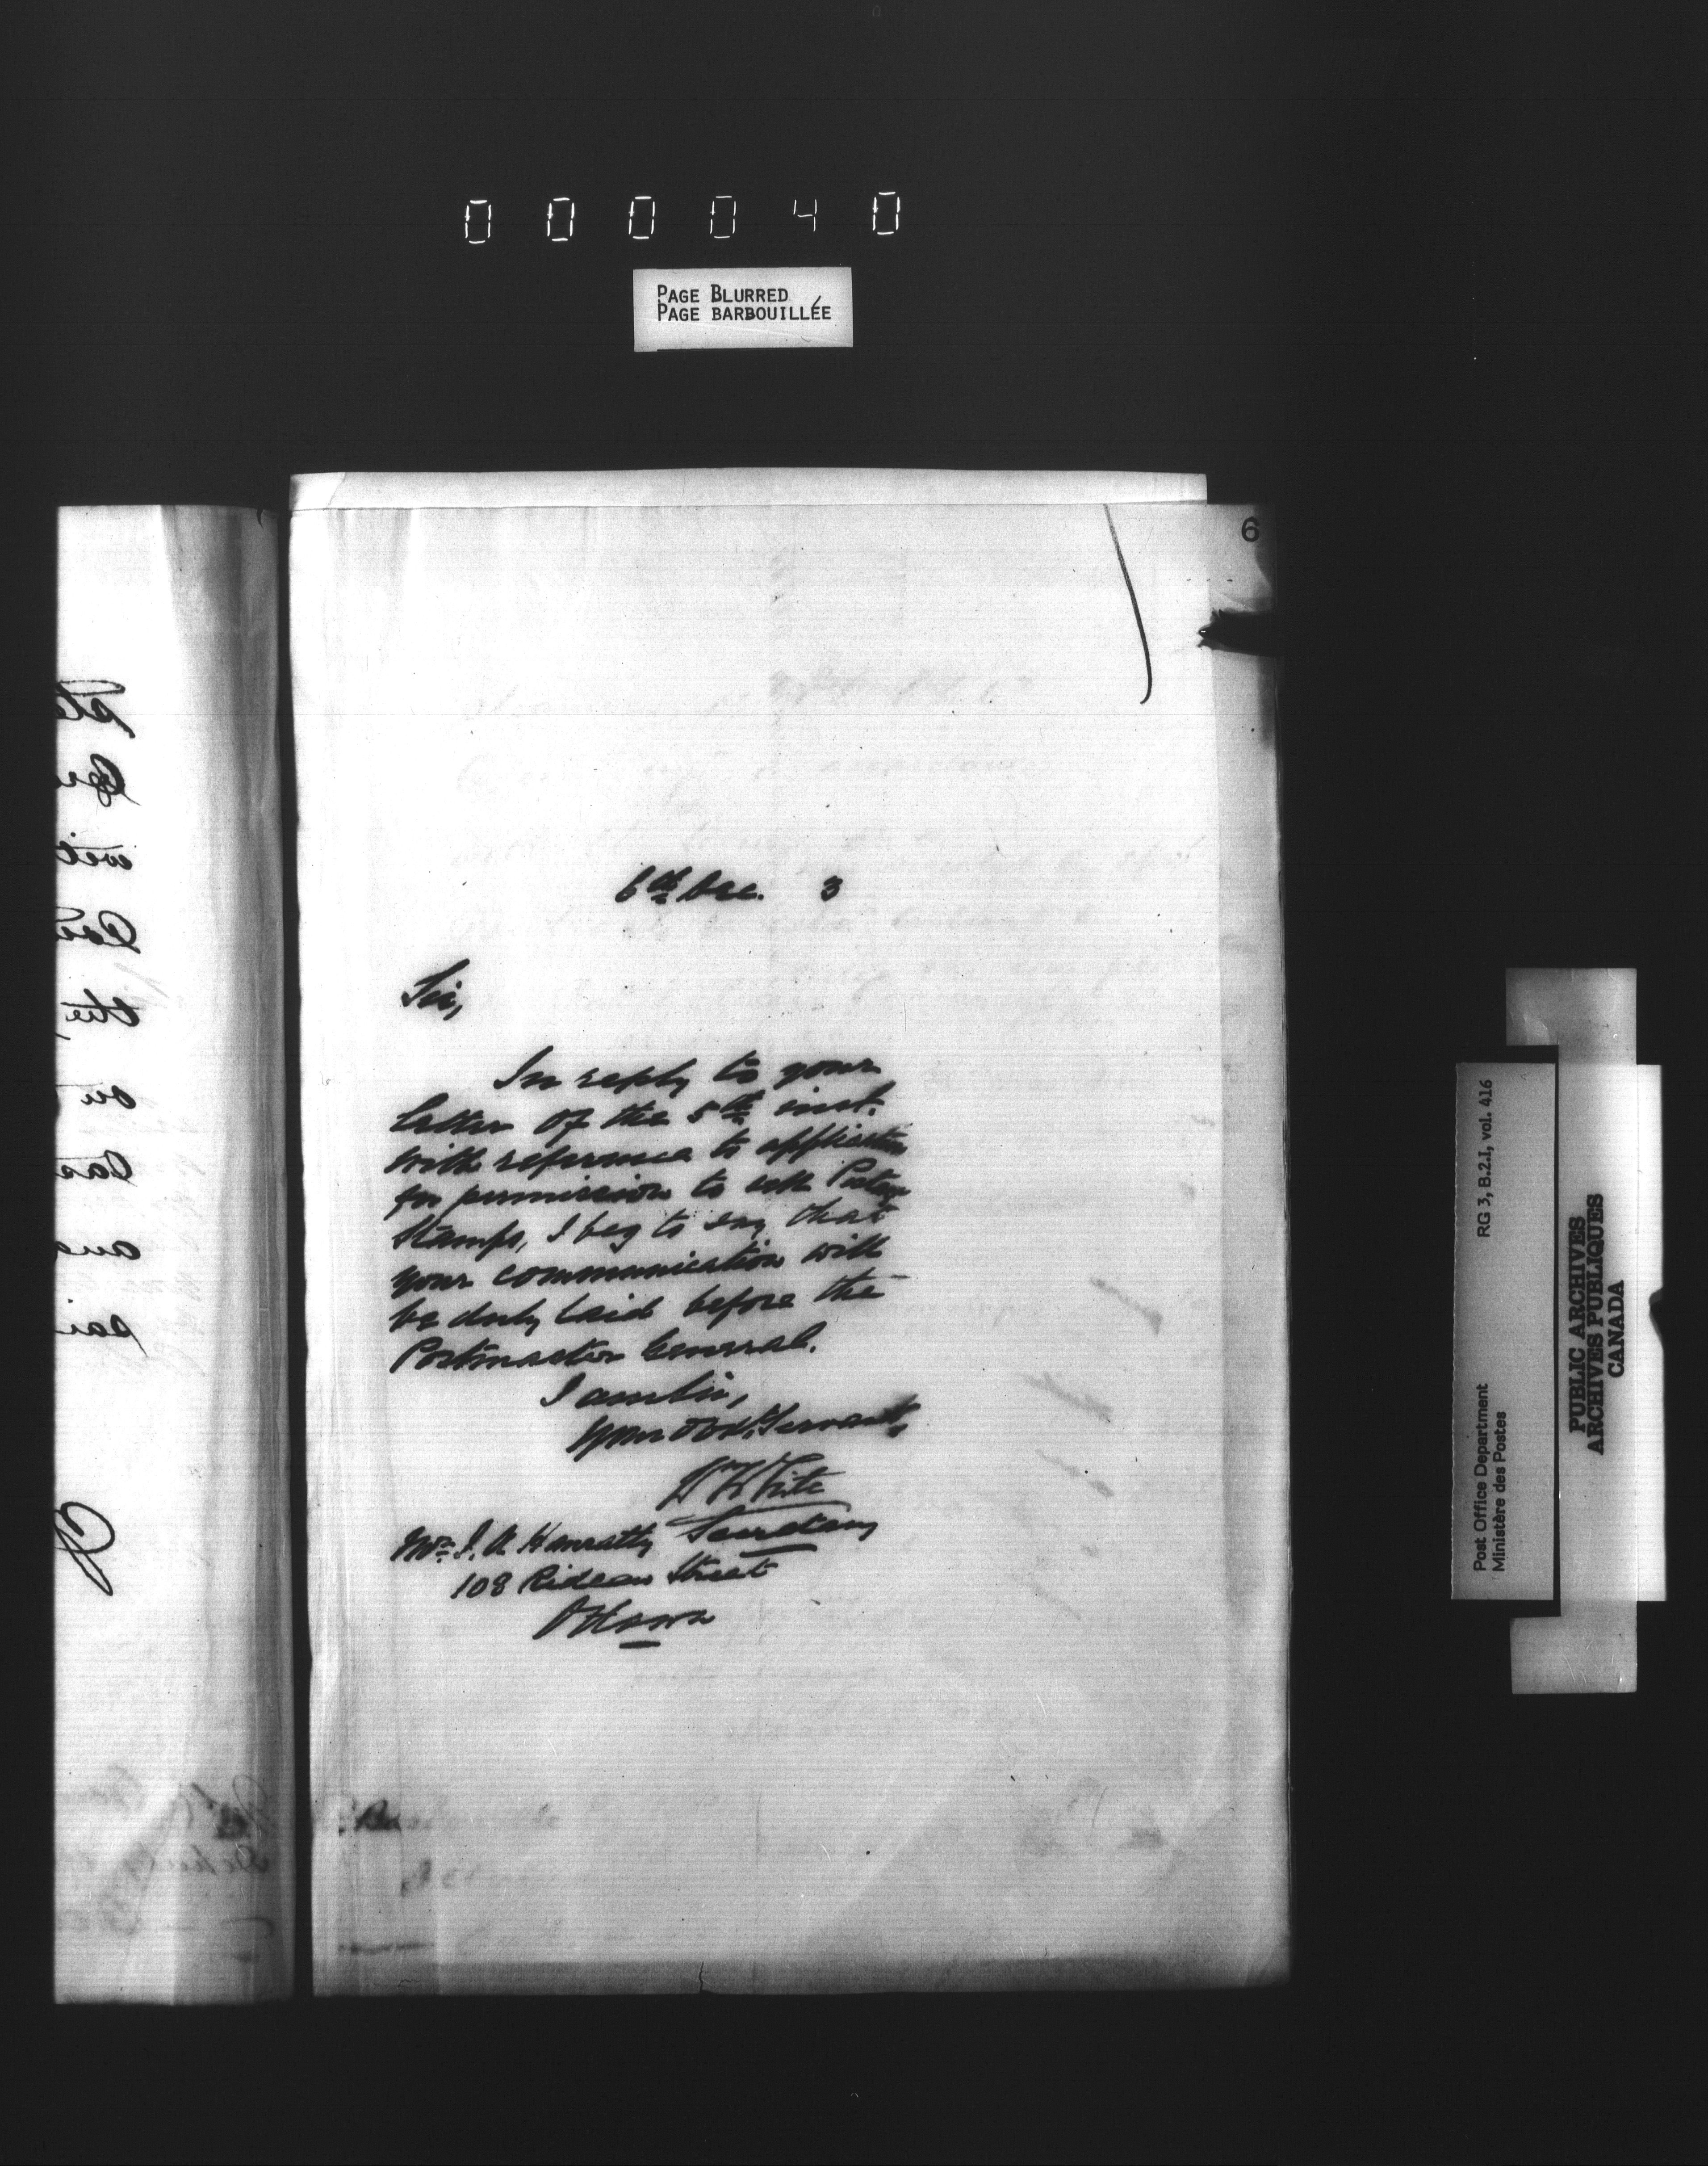 0 0 0 0 4 0
PAGE BLURRED
PAGE BARBOUILLÉE
6
6th Dec. 3
Sir,
In reply to your
letter of the 5th inst.
with reference to application
for permission to sell Postage
Stamps, I beg to say that
your communication will
be duly laid before the
Postmaster General.
I am Sir,
Your Obdt. Servant,
W White
Secretary
Mr. J. A. Hanratty
108 Rideau Street
Ottawa
Post Office Department
Ministère des Postes
RG 3, B.2.I, vol. 416
PUBLIC ARCHIVES
ARCHIVES PUBLIQUES
CANADA